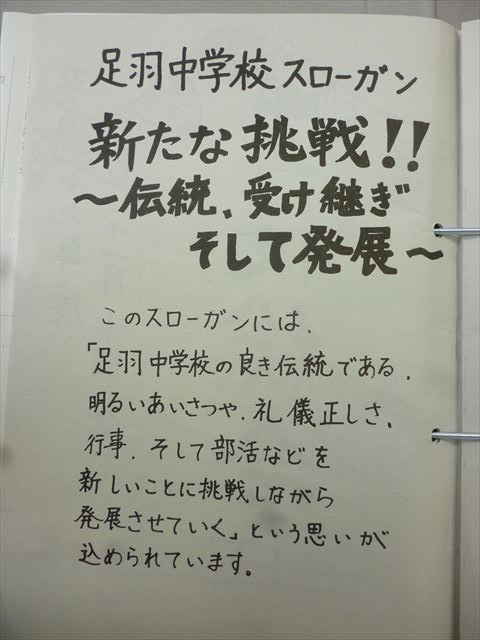 足羽中学校スローガン
新たな挑戦!!
～伝統、受け継ぎ
そして発展～
このスローガンには、
「足羽中学校の良き伝統である、
明るいあいさつや、礼儀正しさ、
行事、そして部活などを
新しいことに挑戦しながら
発展させていく」という思いが
込められています。